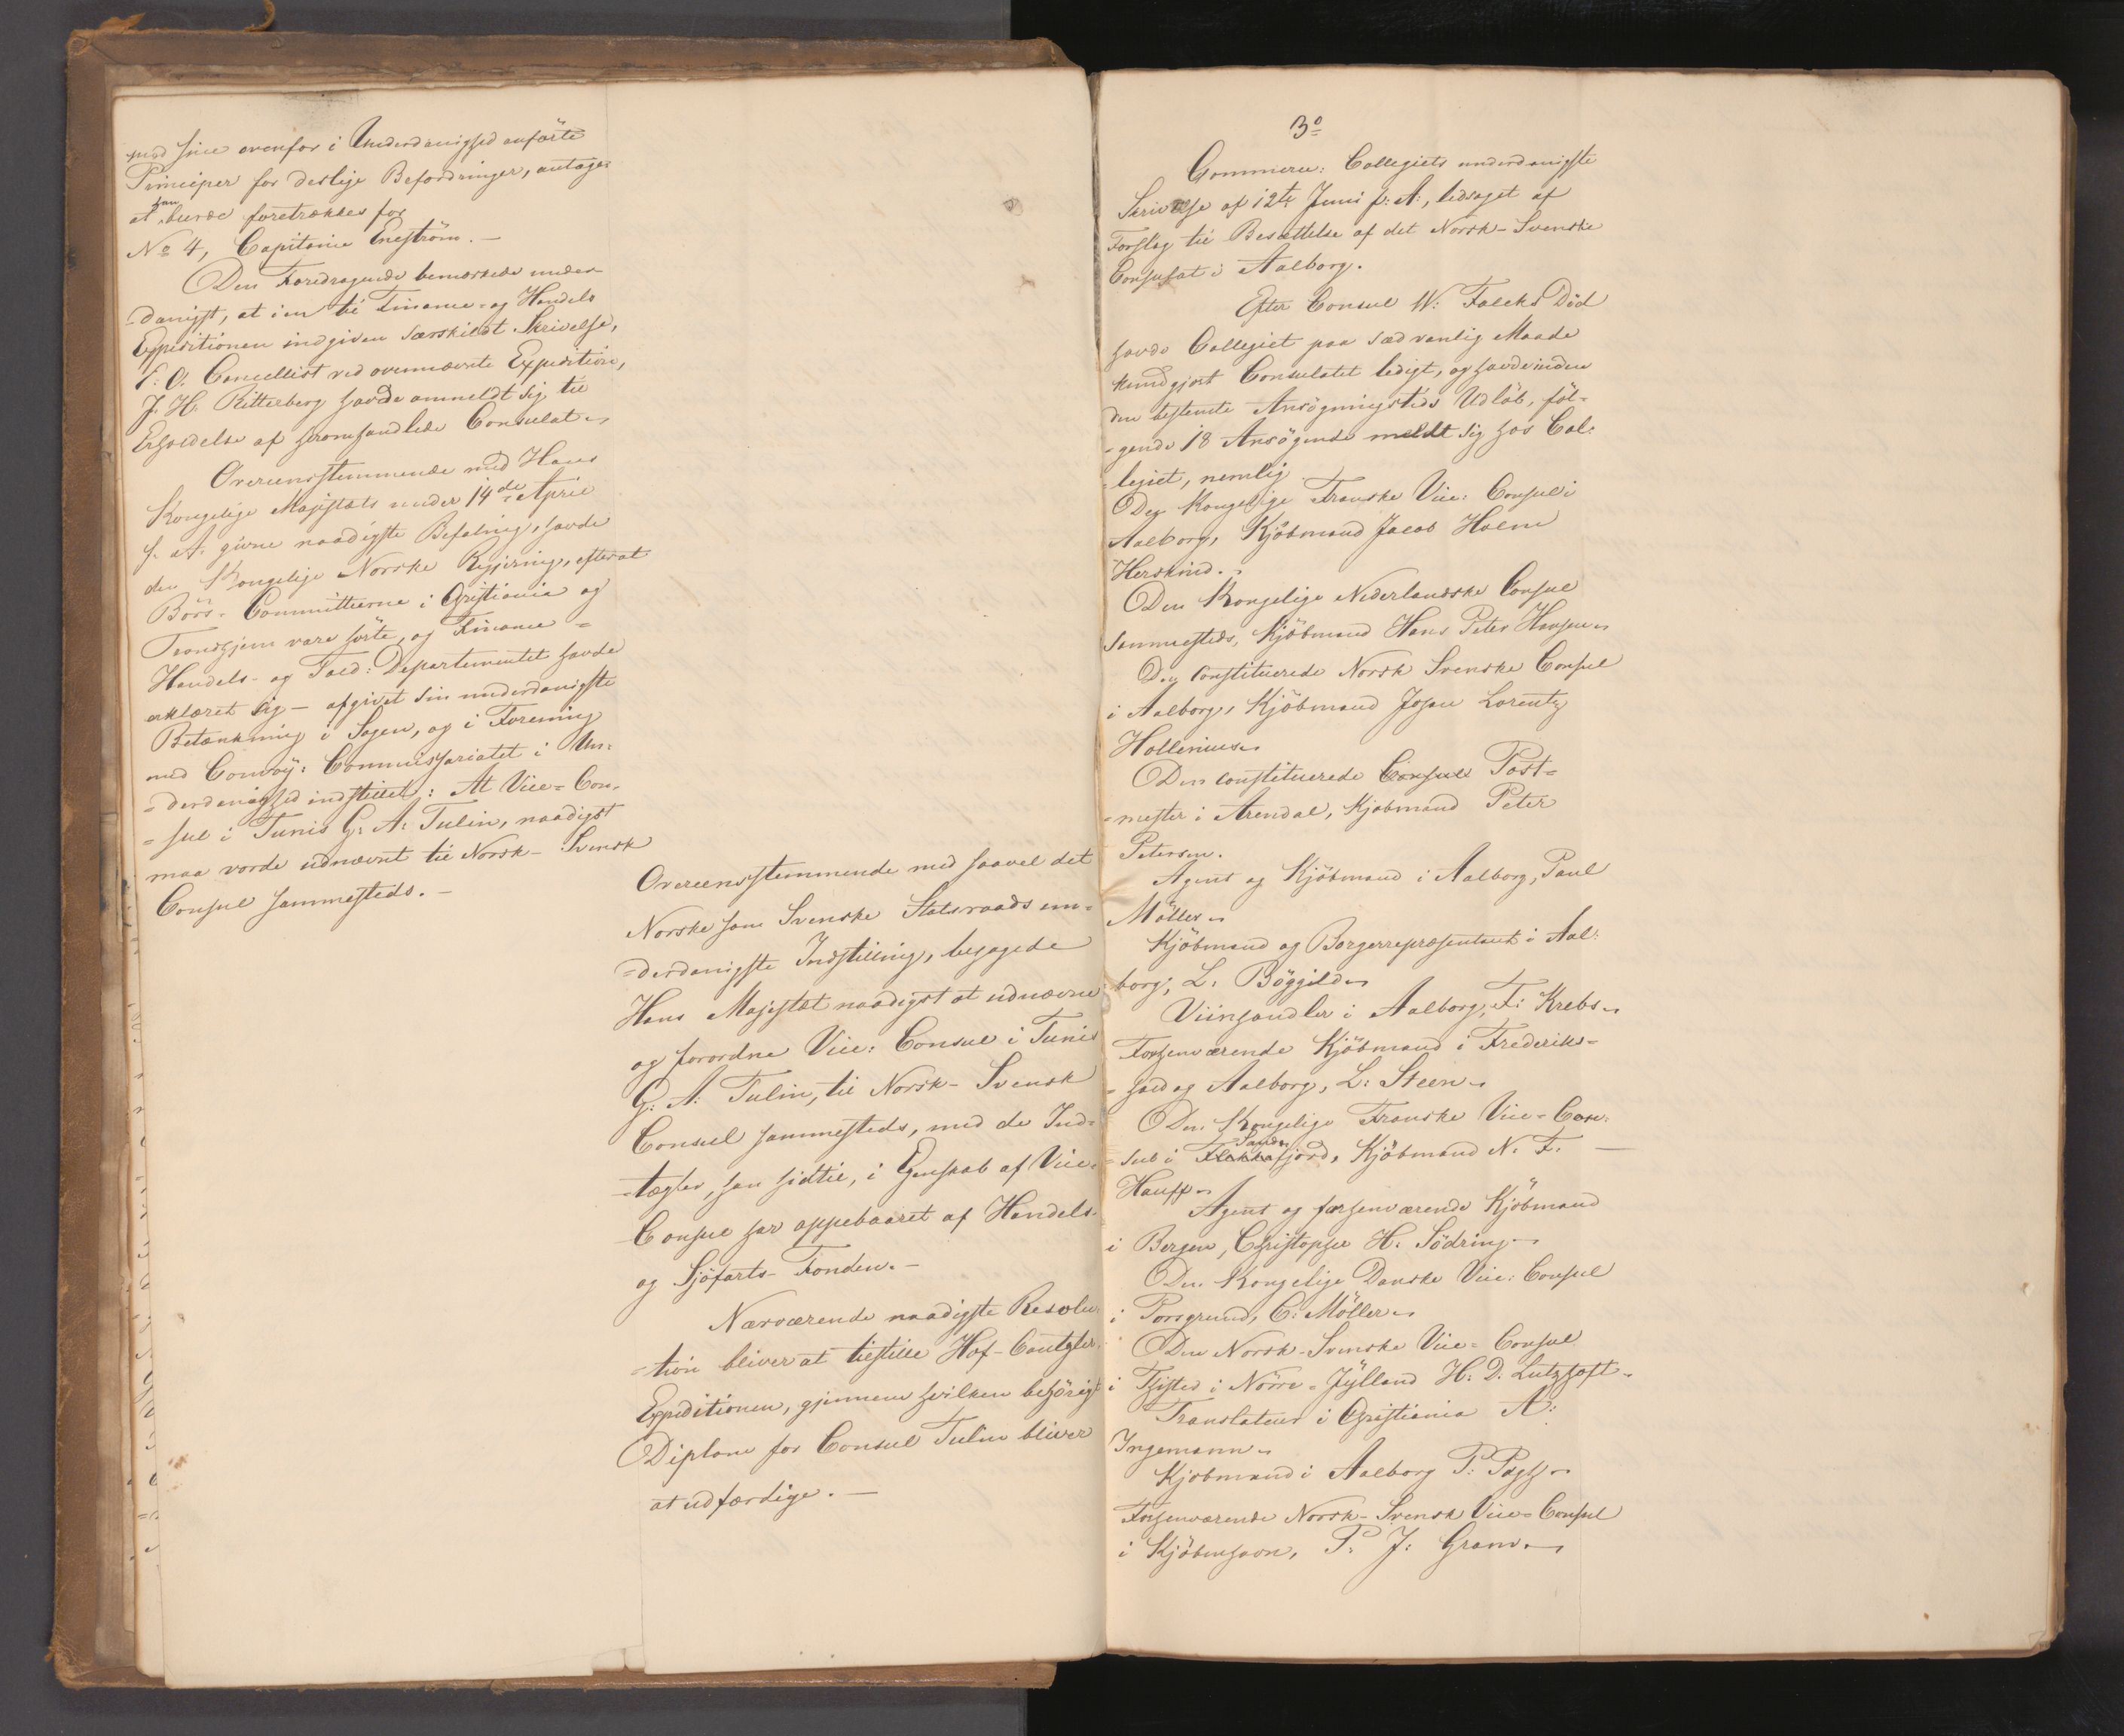 med sine ovenfor i Underdanighed anförte
Principer for deslige Befordringer, antager
at han burde foretrækkes for
No 4, Capitaine Eneström. —
Den Foredragende bemærkede under-
-danigst, at i en til Finance- og Handels
Expeditionen indgiven særskildt Skrivelse,
E. O. Cancellist ved ovennævnte Expedition,
J. H. Ritterberg havde anmeldt sig til
Erholdelse af heromhandlede Consulat.
Overeensstemmende med Hans
Kongelige Majestæts under 14de April
f. A. givne naadigste Befaling, havde
den Kongelige Norske Regjering, efterat
Börs-Committeerne i Christiania og
Trondhjem vare hörte, og Finance-
Handels- og Told-Departementet havde
erklæret sig — afgivet sin underdanigste
Betænkning i Sagen, og i Forening
med Convoy-Commissariatet i Un-
-derdanighed indstillet: At Vice-Con-
-sul i Tunis G. A. Tulin, naadigst
maa vorde udnævnt til Norsk-Svensk
Consul sammesteds. —
Overeensstemmende med saavel det
Norske som Svenske Statsraads un-
-derdanigste Indstilling, behagede
Hans Majestæt naadigst at udnævne
og forordne Vice-Consul i Tunis
G. A. Tulin, til Norsk-Svensk
Consul sammesteds, med de Ind-
-tægter, han hidtil, i Egenskab af Vice-
Consul har oppebaaret af Handels-
og Sjöfarts-Fonden. —
Nærværende naadigste Resolu-
-tion bliver at tilstille Hof-Cantzler-
Expeditionen, gjennem hvilken behörigt
Diplom for Consul Tulin bliver
at udfærdige. —
3o
Commerce-Collegiets underdanigste
Skrivelse af 12te Juni f. A., ledsaget af
Forslag til Besættelse af det Norsk-Svenske
Consulat i Aalborg.
Efter Consul W. Falcks Död
havde Collegiet paa sædvanlig Maade
kundgjort Consulatet ledigt, og havde inden
den bestemte Ansögningstids Udlöb, föl-
-gende 18 Ansögende meldt sig hos Col-
legiet, nemlig
Den Kongelige Franske Vice-Consul i
Aalborg, Kjöbmand Jacob Holm
Herskind.
Den Kongelige Nederlandske Consul
sammesteds, Kjöbmand Hans Peter Hansen
Den Constituerede Norsk Svenske Consul
i Aalborg, Kjöbmand Johan Lorentz
Hollenius
Den constituerede Consul Post-
-mester i Arendal, Kjöbmand Peter
Petersen.
Agent og Kjöbmand i Aalborg, Paul
Möller
Kjöbmand og Borgerrepræsentant i Aal-
borg, L. Böggild
Viinhandler i Aalborg, F. Krebs
Forhenværende Kjöbmand i Frederiks-
-hald og Aalborg, L. Steen
Den Kongelige Franske Vice-Con-
-sul i Sandefjord, Kjöbmand N. F. —
Hauff
Agent og forhenværende Kjöbmand
i Bergen, Christopher H. Södring
Den Kongelige Danske Vice-Consul
i Porsgrund, C. Möller
Den Norsk-Svenske Vice-Consul
i Thisted i Nörre-Jylland H. D. Lutzhoft
Translateur i Christiania A.
Ingemann
Kjöbmand i Aalborg P.
Forhenværende Norsk-Svensk Vice-Consul
i Kjöbenhavn, P. J. Gram.